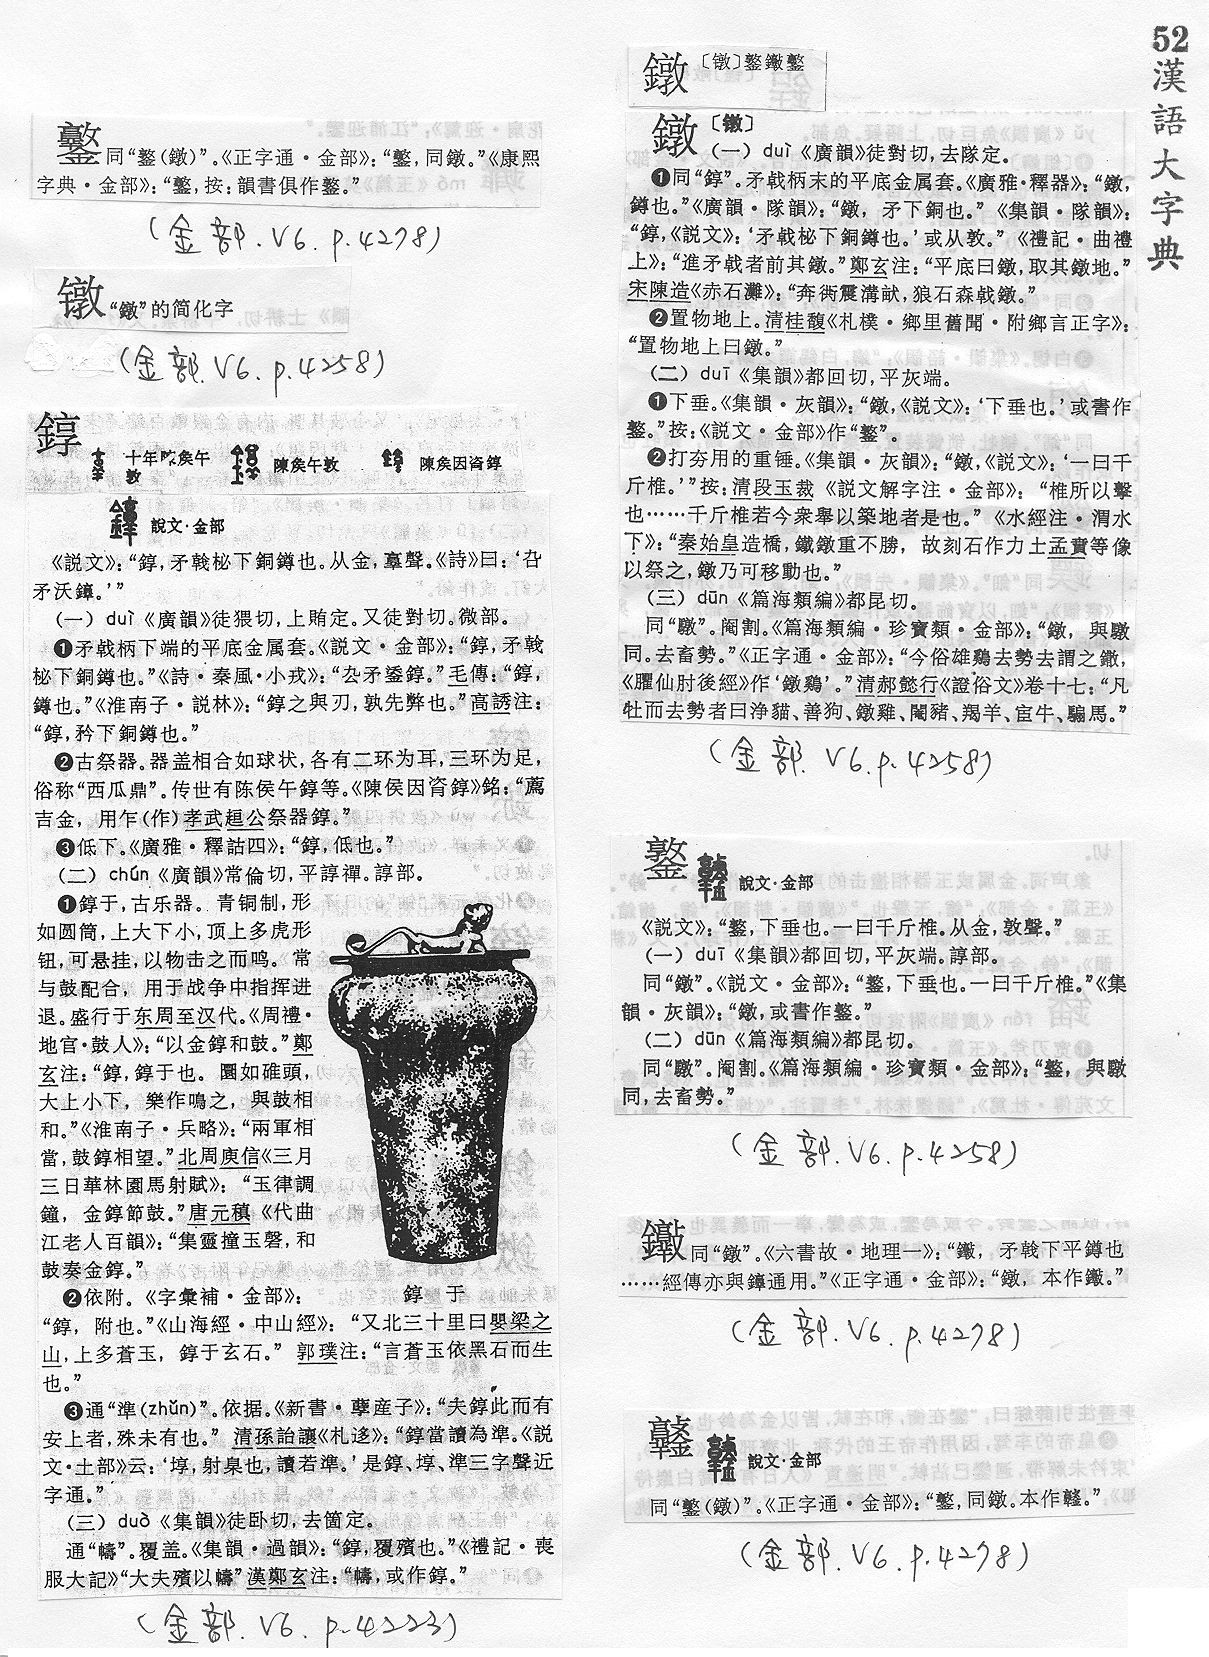 52
漢語大字典
同“鐜(鐓)”。《正字通·金部》：“鐜，同鐓。”《康熙
字典·金部》：“鐜，按：韻書俱作鐜。”
(金部.V6.p.4278)
镦 “鐓”的简化字
(金部.V6.p.4258)
錞
十年陳侯午敦
陳侯午敦
陳侯因𬱖錞
說文·金部
《説文》：“錞，矛戟柲下銅鐏也。从金，𦎫聲。《詩》曰：‘厹
矛沃錞。’”
(一) duì 《廣韻》徒猥切，上賄定。又徒對切。微部。
❶矛戟柄下端的平底金属套。《説文·金部》：“錞，矛戟
柲下銅鐏也。”《詩·秦風·小戎》：“厹矛鋈錞。”毛傳：“錞，
鐏也。”《淮南子·説林》：“錞之與刃，孰先弊也。”高誘注：
“錞，矜下銅鐏也。”
❷古祭器。器盖相合如球状，各有二环为耳，三环为足，
俗称“西瓜鼎”。传世有陈侯午錞等。《陳侯因𬱖錞》銘：“薦
吉金，用乍(作)孝武趄公祭器錞。”
❸低下。《廣雅·釋詁四》：“錞，低也。”
(二) chún 《廣韻》常倫切，平諄禪。諄部。
❶錞于，古乐器。青铜制，形
如圆筒，上大下小，顶上多虎形
钮，可悬挂，以物击之而鸣。常
与鼓配合，用于战争中指挥进
退。盛行于东周至汉代。《周禮·
地官·鼓人》：“以金錞和鼓。”鄭
玄注：“錞，錞于也。圜如碓頭，
大上小下，樂作鳴之，與鼓相
和。”《淮南子·兵略》：“兩軍相
當，鼓錞相望。”北周庾信《三月
三日華林園馬射賦》：“玉律調
鐘，金錞節鼓。”唐元稹《代曲
江老人百韻》：“集靈撞玉磬，和
鼓奏金錞。”
錞于
❷依附。《字彙補·金部》：
“錞，附也。”《山海經·中山經》：“又北三十里曰嬰梁之
山，上多蒼玉，錞于玄石。”郭璞注：“言蒼玉依黑石而生
也。”
❸通“準(zhǔn)”。依据。《新書·孽産子》：“夫錞此而有
安上者，殊未有也。”清孫詒讓《札迻》：“錞當讀為準。《説
文·土部》云：‘埻，射臬也，讀若準。’是錞、埻、準三字聲近
字通。”
(三) duò 《集韻》徒卧切，去箇定。
通“幬”。覆盖。《集韻·過韻》：“錞，覆殯也。”《禮記·喪
服大記》“大夫殯以幬”漢鄭玄注：“幬，或作錞。”
(金部.V6.p.4223)
鐓 〔镦〕鐜
鐓 〔镦〕
(一) duì 《廣韻》徒對切，去隊定。
❶同“錞”。矛戟柄末的平底金属套。《廣雅·釋器》：“鐓，
鐏也。”《廣韻·隊韻》：“鐓，矛下銅也。”《集韻·隊韻》：
“錞，《説文》：‘矛戟柲下銅鐏也。’或从敦。”《禮記·曲禮
上》：“進矛戟者前其鐓。”鄭玄注：“平底曰鐓，取其鐓地。”
宋陳造《赤石灘》：“奔衝震溝猒，狼石森戟鐓。”
❷置物地上。清桂馥《札樸·鄉里舊聞·附鄉言正字》：
“置物地上曰鐓。”
(二) duī 《集韻》都回切，平灰端。
❶下垂。《集韻·灰韻》：“鐓，《説文》：‘下垂也。’或書作
鐜。”按：《説文·金部》作“鐜”。
❷打夯用的重锤。《集韻·灰韻》：“鐓，《説文》：‘一曰千
斤椎。’”按：清段玉裁《説文解字注·金部》：“椎所以擊
也……千斤椎若今衆舉以築地者是也。”《水經注·渭水
下》：“秦始皇造橋，鐵鐓重不勝，故刻石作力士孟賁等像
以祭之，鐓乃可移動也。”
(三) dūn 《篇海類編》都昆切。
同“驐”。阉割。《篇海類編·珍寶類·金部》：“鐓，與驐
同。去畜勢。”《正字通·金部》：“今俗雄鷄去勢去謂之鐓，
《臞仙肘後經》作‘鐓鷄’。”清郝懿行《證俗文》卷十七：“凡
牡而去勢者曰净貓、善狗、鐓雞、閹豬、羯羊、宦牛、騸馬。”
(金部.V6.p.4258)
鐜
說文·金部
《説文》：“鐜，下垂也。一曰千斤椎。从金，敦聲。”
(一) duī 《集韻》都回切，平灰端。諄部。
同“鐓”。《説文·金部》：“鐜，下垂也。一曰千斤椎。”《集
韻·灰韻》：“鐓，或書作鐜。”
(二) dūn 《篇海類編》都昆切。
同“驐”。阉割。《篇海類編·珍寶類·金部》：“鐜，與驐
同，去畜勢。”
(金部.V6.p.4258)
同“鐓”。《六書故·地理一》：“，矛戟下平鐏也
……經傳亦與錞通用。”《正字通·金部》：“鐓，本作。”
(金部.V6.p.4278)
說文·金部
同“鐜(鐓)”。《正字通·金部》：“鐜，同鐓。本作。”
(金部.V6.p.4278)